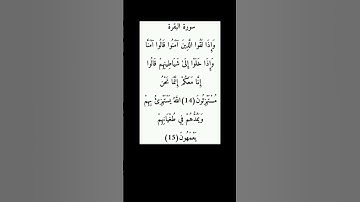 سورة البقرة
وَإِذَا لَقُوا الَّذِينَ آمَنُوا قَالُوا آمَنَّا
وَإِذَا خَلَوْا إِلَىٰ شَيَاطِينِهِمْ قَالُوا
إِنَّا مَعَكُمْ إِنَّمَا نَحْنُ
مُسْتَهْزِئُونَ(14) اللَّهُ يَسْتَهْزِئُ بِهِمْ
وَيَمُدُّهُمْ فِي طُغْيَانِهِمْ
يَعْمَهُونَ(15)